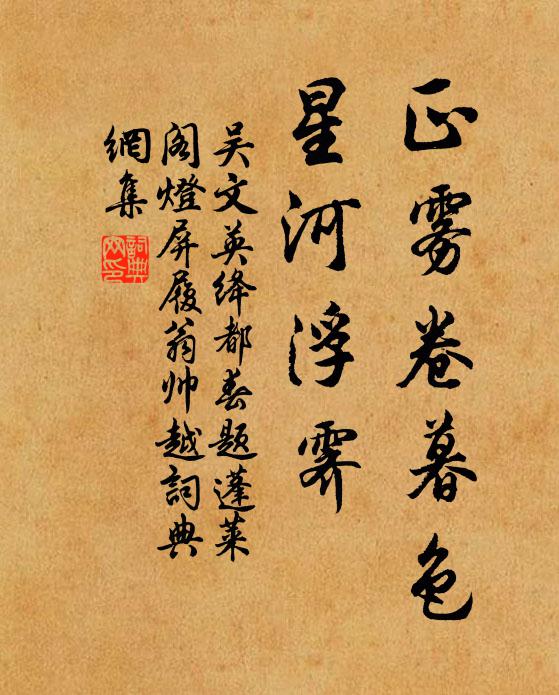 正雾卷暮色
星河浮霁
吴文英绛都春题蓬莱
阁燈屏履翁帅越詞典
網集
詞典
网印